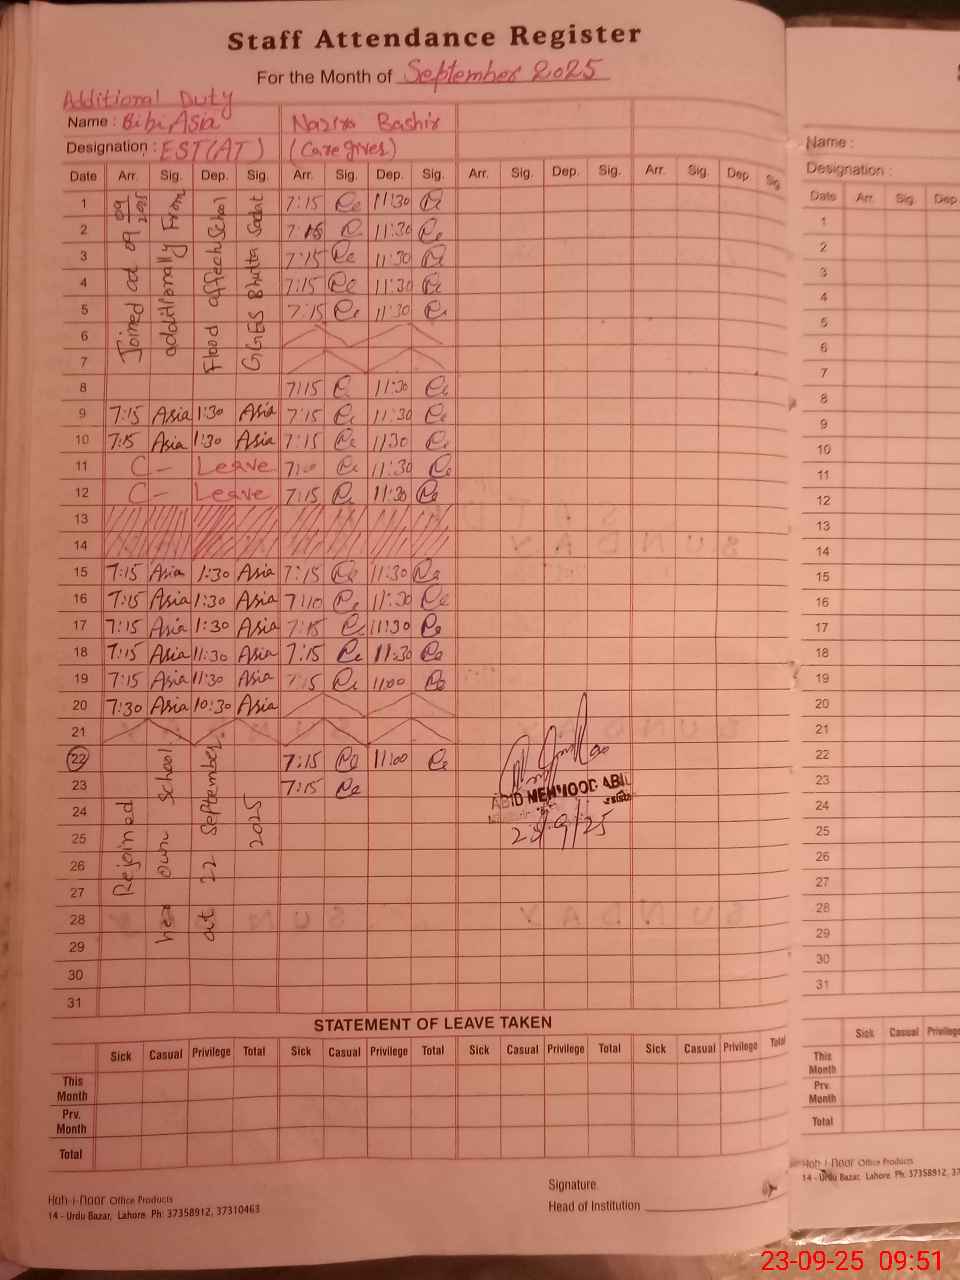 Staff Attendance Register
For the Month of September 2025
Additional Duty
Name : Bibi Asia Nazira Bashir
Designation : EST(AT) (Caregiver)
Date Arr. Sig. Dep. Sig. Arr. Sig. Dep. Sig. Arr. Sig. Dep. Sig. Arr. Sig. Dep. Sig.
Joined at 09 09 2025
additionally From
Flood affect School
GGES Bhutta Sadat
1 7:15 11:30
2 7:15 11:30
3 7:15 11:30
4 7:15 11:30
5 7:15 11:30
6
7
8 7:15 11:30
9 7:15 Asia 1:30 Asia 7:15 11:30
10 7:15 Asia 1:30 Asia 7:15 11:30
11 C - Leave 11:30
12 C - Leave 7:15 11:30
13
14
15 7:15 Asia 1:30 Asia 7:15 11:30
16 7:15 Asia 1:30 Asia 7:10 11:30
17 7:15 Asia 1:30 Asia 7:15 11:30
18 7:15 Asia 11:30 Asia 7:15 11:30
19 7:15 Asia 11:30 Asia 7:15 11:00
20 7:30 Asia 10:30 Asia
21
22 7:15 11:00
23 7:15
24
25
26
27
28
29
30
31
Rejoined
her own School
at 22 September
2025
ABID MEHMOOD ABID
23/9/25
STATEMENT OF LEAVE TAKEN
Sick Casual Privilege Total Sick Casual Privilege Total Sick Casual Privilege Total Sick Casual Privilege Total
This Month
Prv. Month
Total
Signature.
Head of Institution
Hoh-i-Noor Office Products
14 - Urdu Bazar, Lahore. Ph: 37358912, 37310463
Name :
Designation :
Date Arr. Sig. Dep
1
2
3
4
5
6
7
8
9
10
11
12
13
14
15
16
17
18
19
20
21
22
23
24
25
26
27
28
29
30
31
Sick Casual Privilege
This Month
Prv. Month
Total
Hoh-i-Noor Office Products
14 - Urdu Bazar, Lahore. Ph: 37358912, 37
23-09-25 09:51